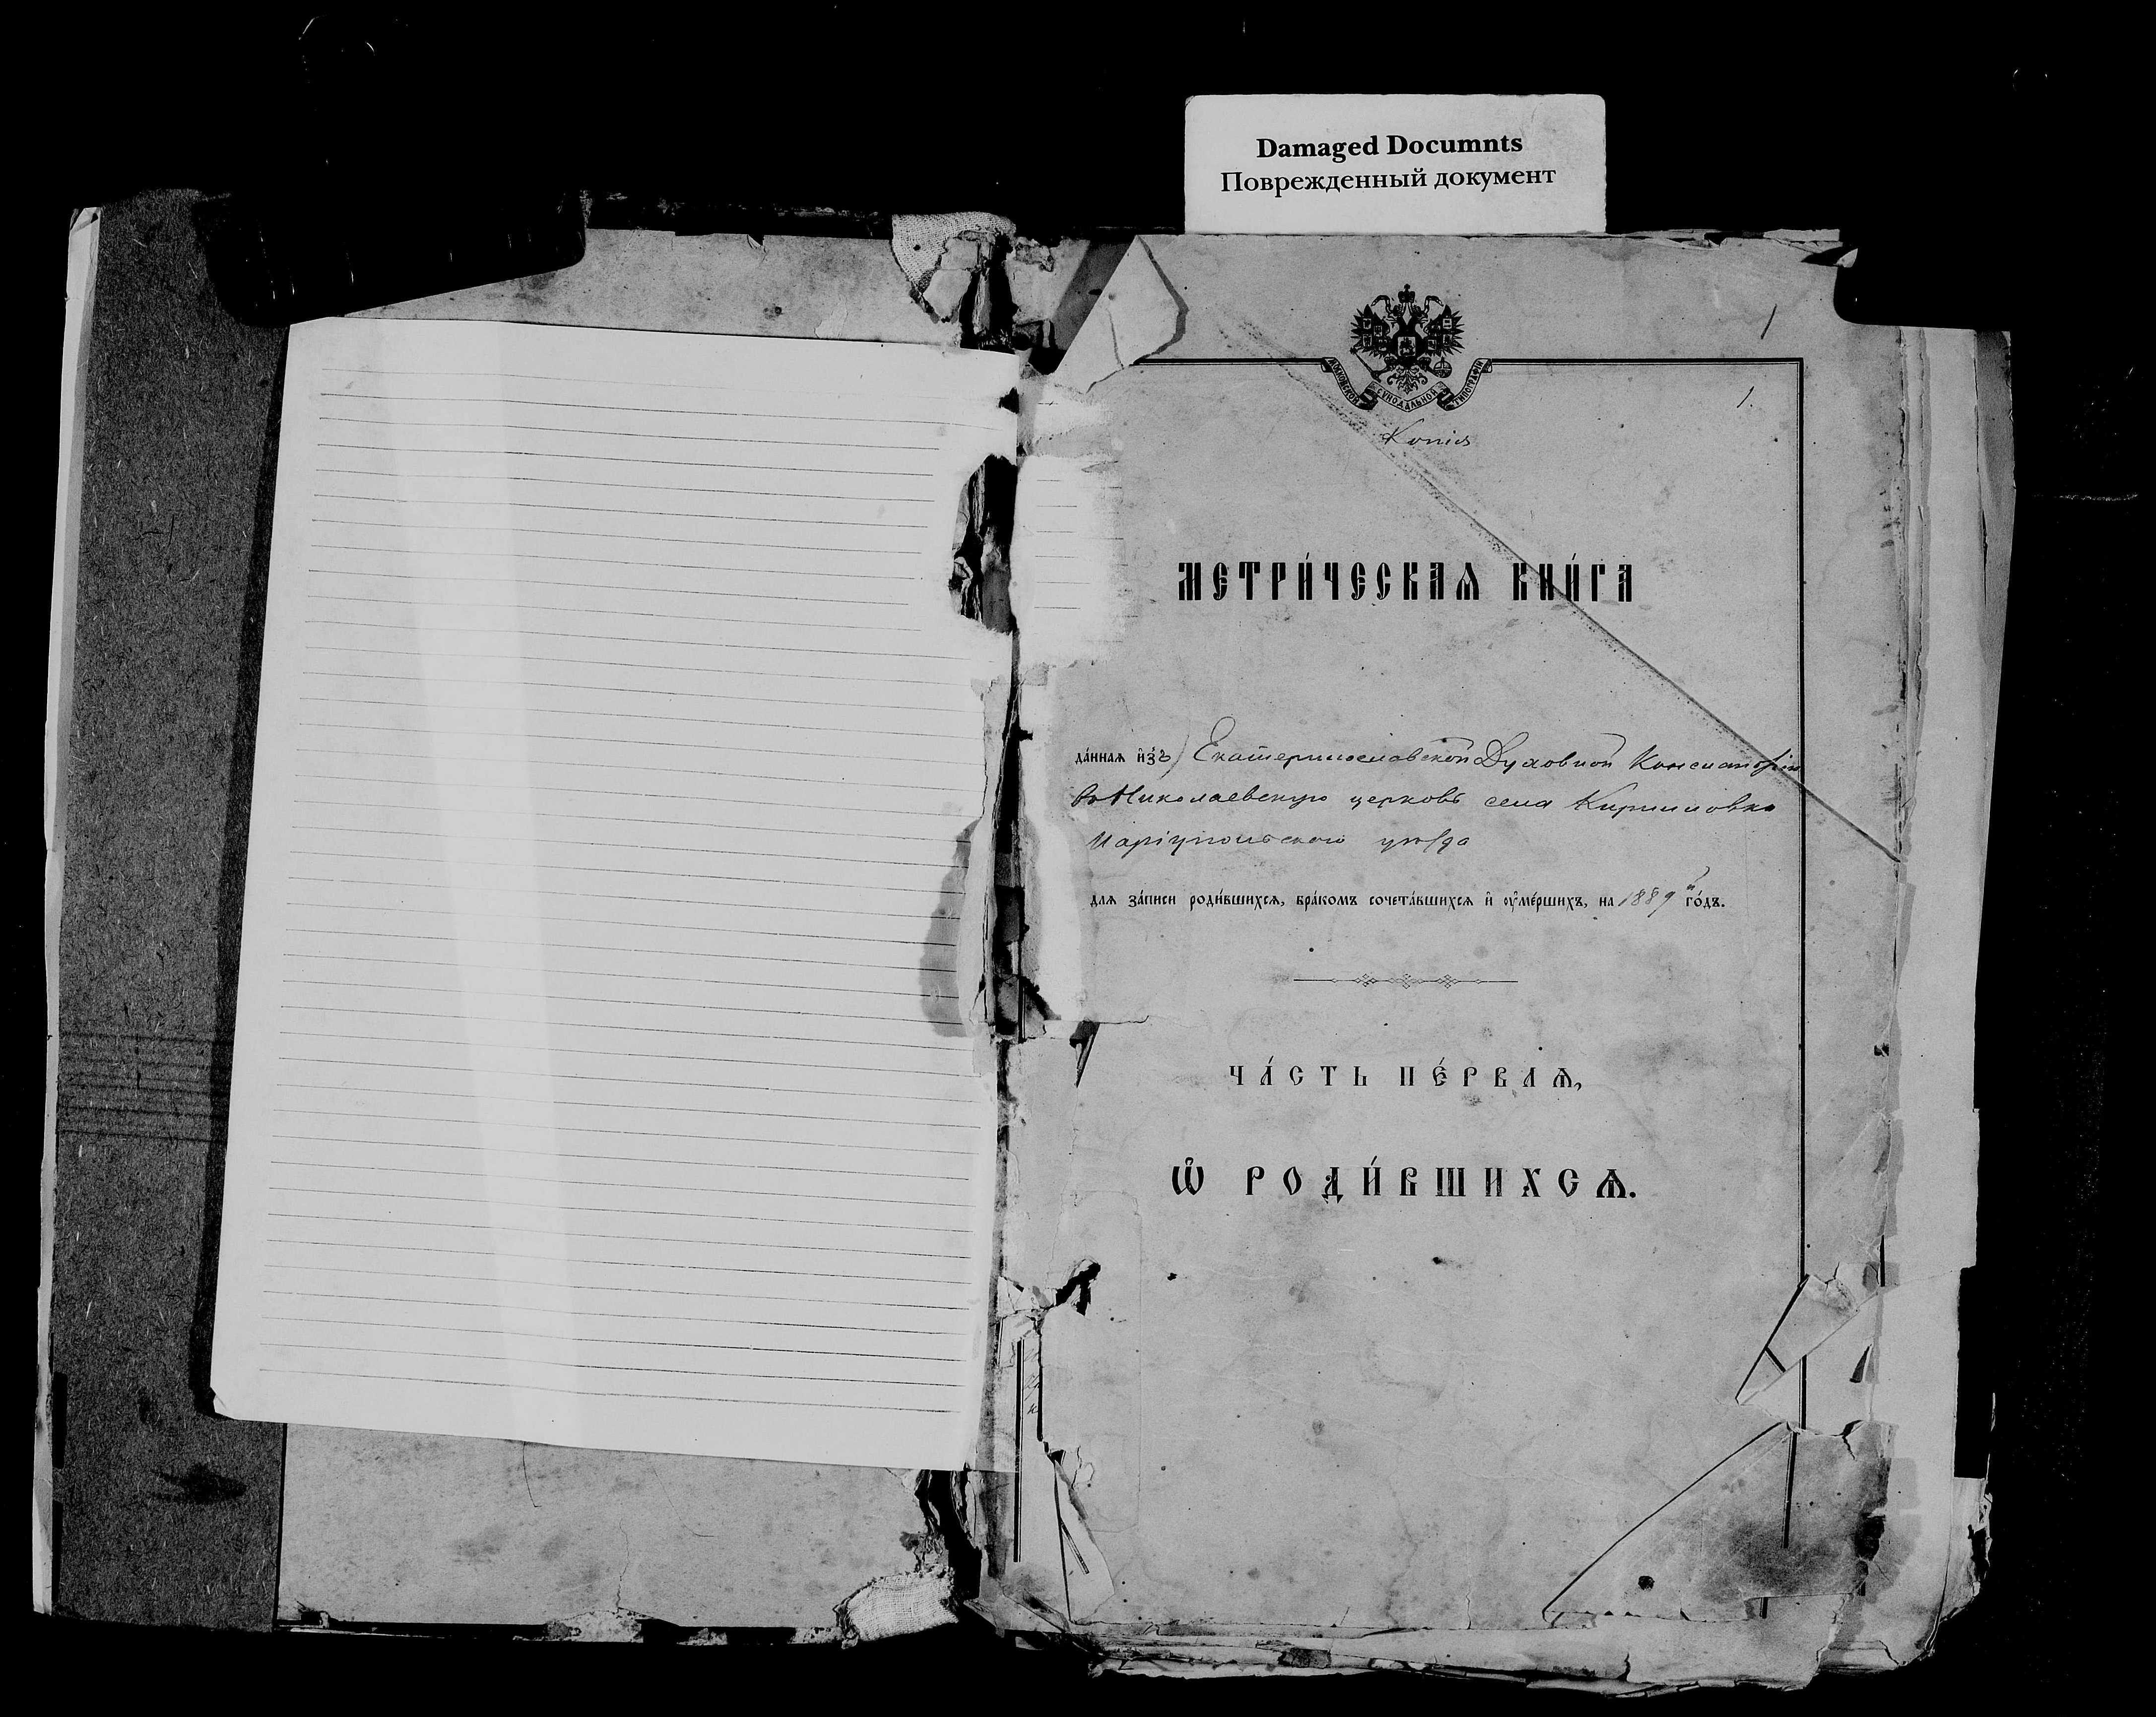 Damaged Documnts
Поврежденный документ
1
МОСКОВСКОЙ СѴНОДАЛЬНОЙ ТИПОГРАФІИ
1.
Копія
МЕТРИ́ЧЕСКАѦ КНИ́ГА
да́ннаѧ и҆з̾ Екатеринославской Духовной Консисторіи
въ Николаевскую церковь села Кирилловки
Маріупольскаго уѣзда
длѧ за́писи роди́вшихсѧ, бра́комъ сочета́вшихсѧ и҆ ᲂу҆ме́ршихъ, на 1889й го́дъ.
ЧА́СТЬ ПЕ́РВАѦ,
Ѽ РОДИ́ВШИХСѦ.